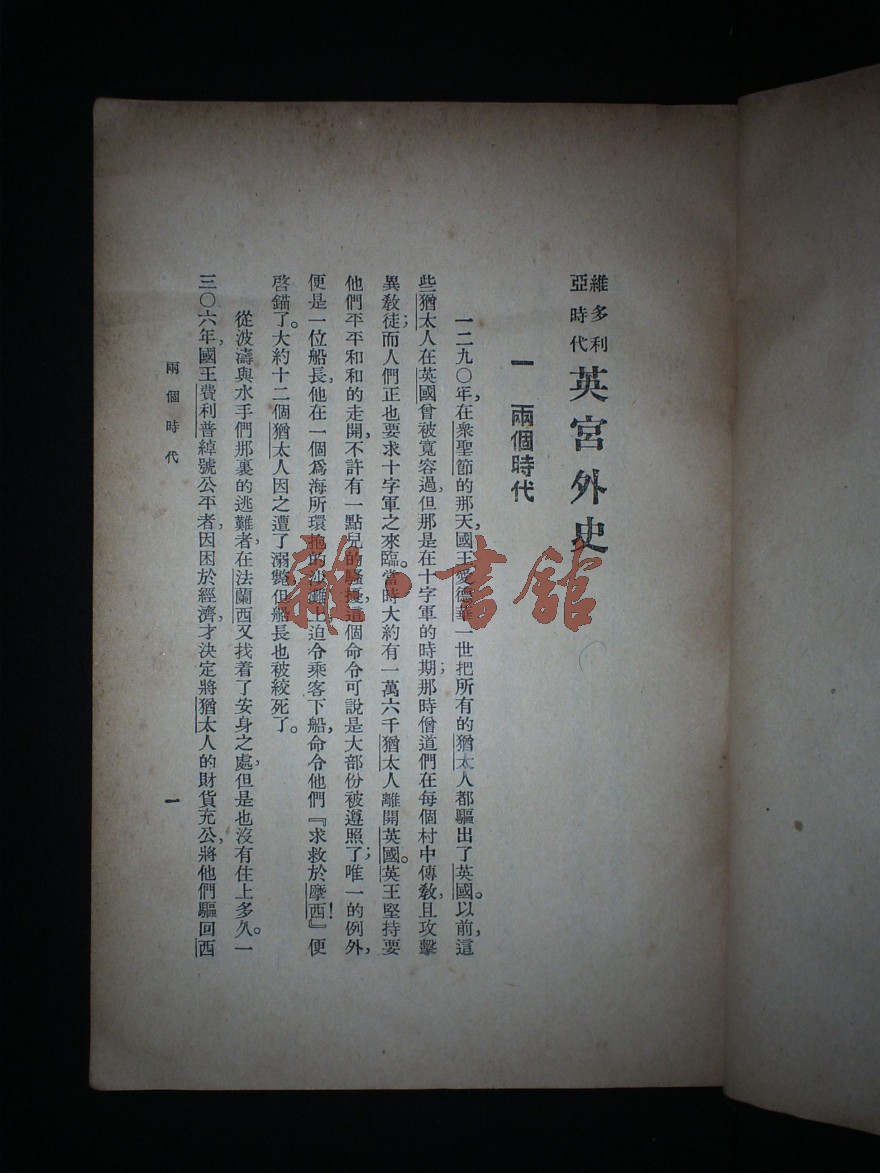 維多利
亞時代
英宮外史
一 兩個時代
一二九〇年，在衆聖節的那天，國王愛德華一世把所有的猶太人都驅出了英國。以前，這
些猶太人在英國曾被寬容過，但那是在十字軍的時期；那時僧道們在每個村中傳教，且攻擊
異教徒；而人們正也要求十字軍之來臨。當時大約有一萬六千猶太人離開英國。英王堅持要
他們平平和和的走開，不許有一點兒的騷擾，這個命令可說是大部份被遵照了；唯一的例外，
便是一位船長，他在一個爲海所環抱的沙灘上迫令乘客下船，命令他們『求救於摩西！』便
啓錨了。大約十二個猶太人因之遭了溺斃但船長也被絞死了。
從波濤與水手們那裏的逃難者，在法蘭西又找着了安身之處，但是也沒有住上多久。一
三〇六年，國王費利普綽號公平者，因困於經濟，才決定將猶太人的財貨充公，將他們驅回西
兩個時代
一
雜·書館